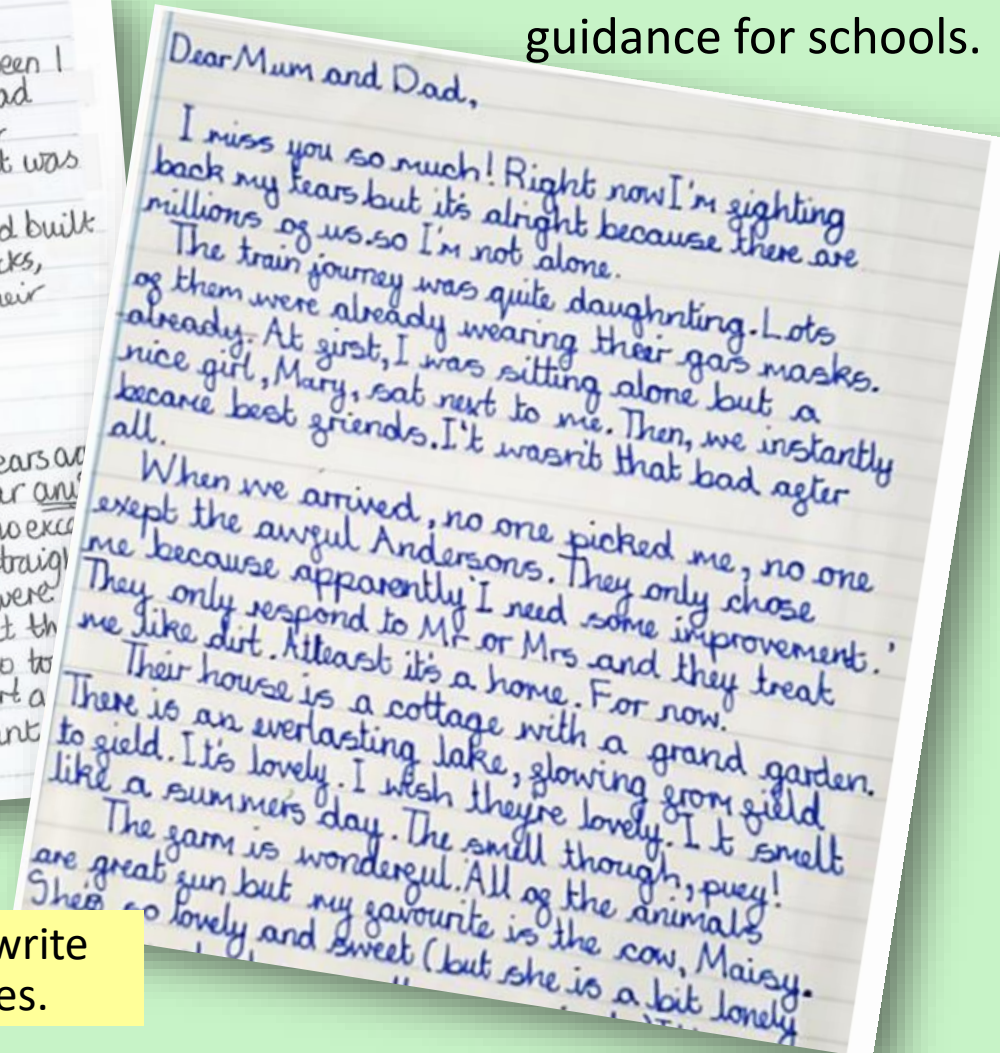 guidance for schools.
een I
ad
t was
d built
cks,
eir
traigh
were.
t th
o to
rt a
Dear Mum and Dad,
I miss you so much! Right now I'm fighting
back my tears but it's alright because there are
millions of us. so I'm not alone.
The train journey was quite daughnting. Lots
of them were already wearing their gas masks.
already. At first, I was sitting alone but a
nice girl, Mary, sat next to me. Then, we instantly
became best friends. I't wasn't that bad after
all.
When we arrived, no one picked me, no one
exept the awful Andersons. They only chose
me because apparently 'I need some improvement.'
They only respond to Mr or Mrs and they treat
me like dirt. Atleast it's a home. For now.
Their house is a cottage with a grand garden.
There is an everlasting lake, flowing from field
to field. It's lovely. I wish theyre lovely. I t smelt
like a summers day. The smell though, puey!
The farm is wonderful. All of the animals
are great fun but my favourite is the cow, Maisy.
She's so lovely and sweet (but she is a bit lonely
write
es.